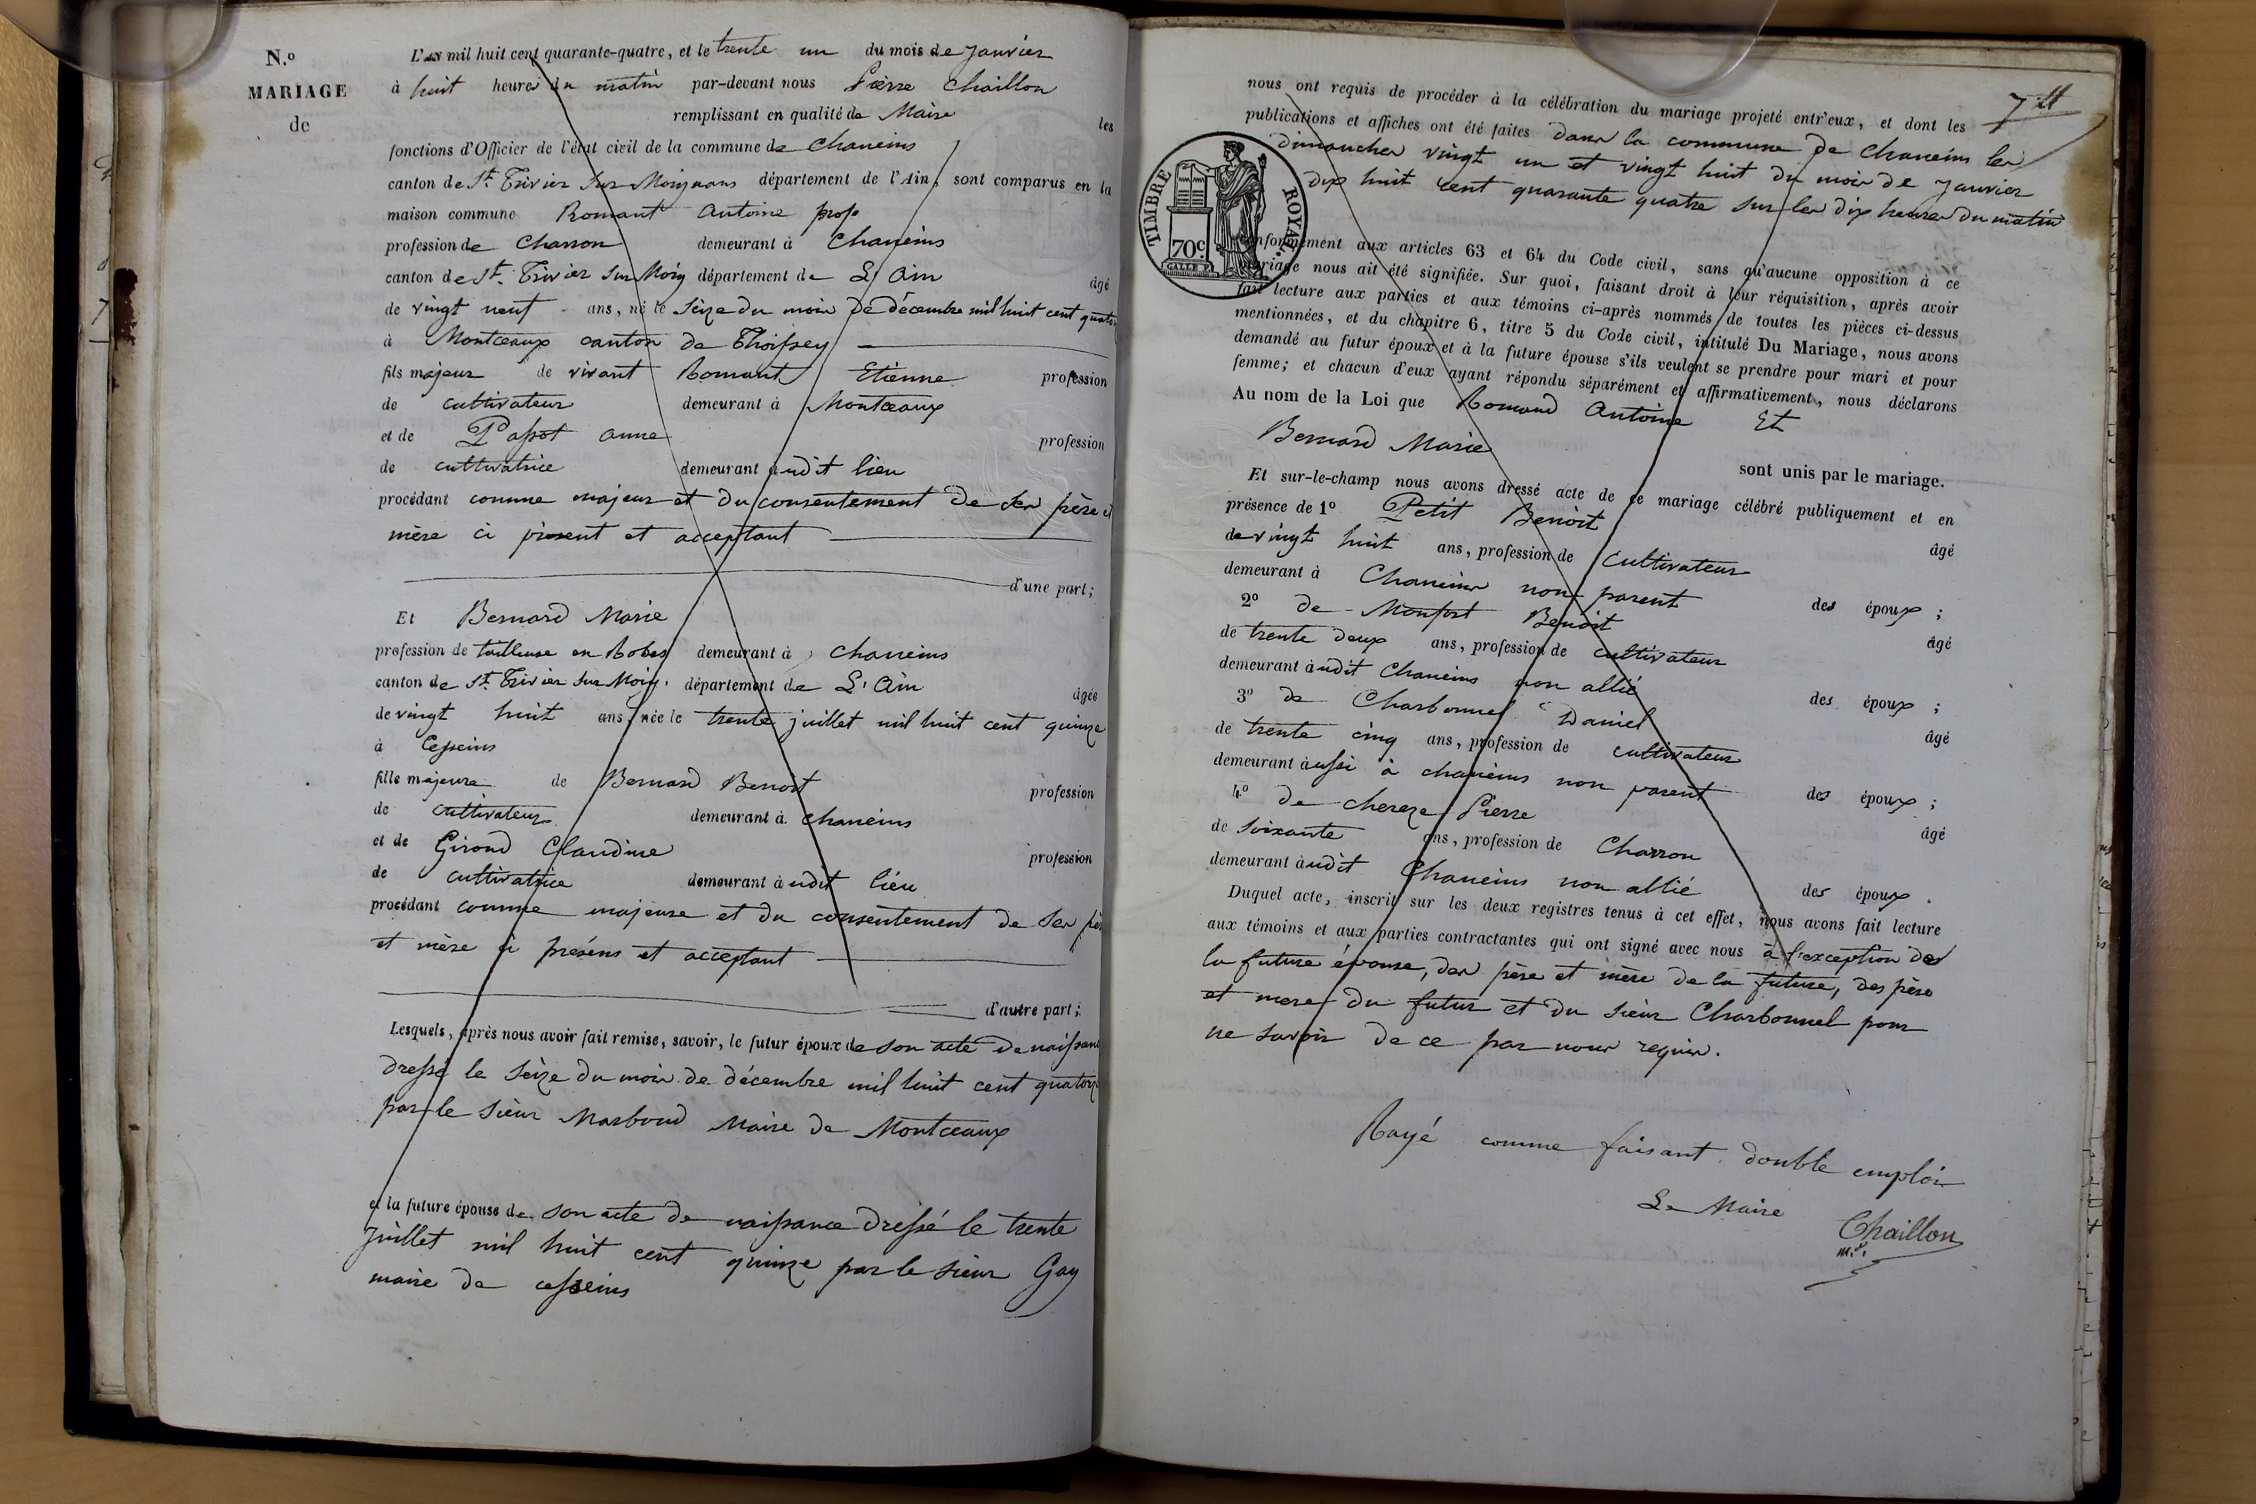 N.º
MARIAGE
de
L'AN mil huit cent quarante-quatre, et le trente un du mois de Janvier
à huit heures du matin par-devant nous Pierre Chaillon
remplissant en qualité de Maire les
fonctions d'Officier de l'état civil de la commune de Chaneins
canton de St. Trivier Sur Moignans département de l'Ain, sont comparus en la
maison commune Romant Antoine
profession de Charron demeurant à Chaneins
canton de St. Trivier Sur Moig département de L'Ain âgé
de vingt neuf ans, né le Seize du mois de décembre mil huit cent
à Montceaux canton de Thoissey
fils majeur de vivant Romant Etienne profession
de cultivateur demeurant à Montceaux
et de Passot anne profession
de cultivatrice demeurant audit lieu
procédant comme majeur et du consentement de Ses père et
mère ci présent et acceptant
d'une part;
Et Bernard Marie
profession de tailleuse en Robes demeurant à Chaneins
canton de St. Trivier Sur Moig. département de L'Ain âgée
de vingt huit ans, née le trente juillet mil huit cent quinze
à Cesseins
fille majeure de Bernard Benoit profession
de cultivateur demeurant à chaneins
et de Girond Claudine profession
de cultivatrice demeurant audit lieu
procédant comme majeure et du consentement de Ses
et mère ci présens et acceptant
d'autre part;
Lesquels, après nous avoir fait remise, savoir, le futur époux de son acte de
dressé le Seize du mois de décembre mil huit cent
par le Sieur Marboud Maire de Montceaux
et la future épouse de son acte de naissance dressé le trente
Juillet mil huit cent quinze par le Sieur Gay
maire de cesseins
nous ont requis de procéder à la célébration du mariage projeté entr'eux, et dont les
publications et affiches ont été faites dans la commune de Chaneins les
dimanches vingt un et vingt huit du mois de Janvier
dix huit cent quarante quatre sur les dix heures du matin
TIMBRE ROYAL.
70 c.
conformément aux articles 63 et 64 du Code civil, sans qu'aucune opposition à ce
mariage nous ait été signifiée. Sur quoi, faisant droit à leur réquisition, après avoir
fait lecture aux parties et aux témoins ci-après nommés de toutes les pièces ci-dessus
mentionnées, et du chapitre 6, titre 5 du Code civil, intitulé Du Mariage, nous avons
demandé au futur époux et à la future épouse s'ils veulent se prendre pour mari et pour
femme; et chacun d'eux ayant répondu séparément et affirmativement, nous déclarons
Au nom de la Loi que Romand Antoine Et
Bernard Marie
sont unis par le mariage.
Et sur-le-champ nous avons dressé acte de ce mariage célébré publiquement et en
présence de 1º Petit Benoit âgé
de vingt huit ans, profession de Cultivateur
demeurant à Chaneins non parent des époux ;
2º de Monfort Benoit âgé
de trente deux ans, profession de cultivateur
demeurant audit Chaneins non allié des époux ;
3º de Charbonnel Daniel âgé
de trente cinq ans, profession de cultivateur
demeurant aussi à chaneins non parent des époux ;
4º de chereze Pierre âgé
de Soixante ans, profession de Charron
demeurant audit Chaneins non allié des époux .
Duquel acte, inscrit sur les deux registres tenus à cet effet, nous avons fait lecture
aux témoins et aux parties contractantes qui ont signé avec nous à l'exception de
la future épouse, des père et mère de la future, des père
et mere du futur et du sieur Charbonnel pour
ne savoir de ce par nous requis.
Rayé comme faisant double emploi
Le Maire
Chaillon